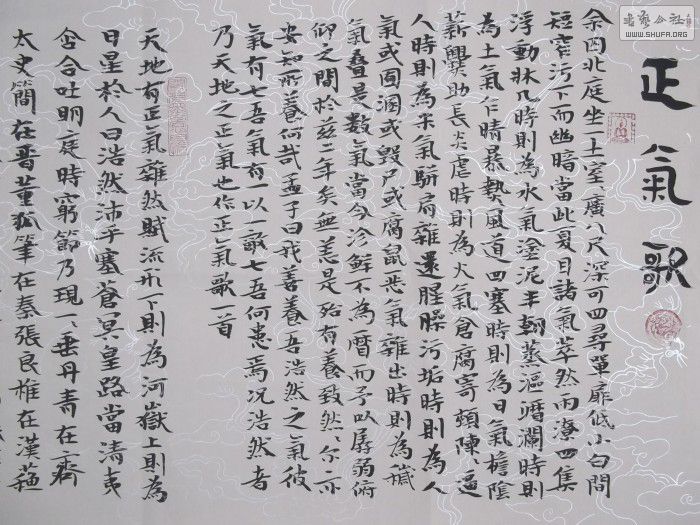 正氣歌
余囚北庭坐一土室廣八尺深可四尋單扉低小白間
短窄污下而幽暗當此夏日諸氣萃然雨潦四集
浮動牀几時則為水氣塗泥半朝蒸漚瀝瀾時則
為土氣乍晴暴熱風道四塞時則為日氣檐陰
薪爨助長炎虐時則為火氣倉腐寄頓陳〻逼
人時則為米氣駢肩雜遝腥臊污垢時則為人
氣或圊溷或毀尸或腐鼠惡氣雜出時則為穢
氣疊是數氣當今沴鮮不為厲而予以孱弱俯
仰之間於茲二年矣無恙是殆有養致然〻尔亦
安知所養何哉孟子曰我善養吾浩然之氣彼
氣有七吾氣有一以一敵七吾何患焉況浩然者
乃天地之正氣也作正氣歌一首
天地有正氣雜然賦流形下則為河嶽上則為
日星於人曰浩然沛乎塞蒼冥皇路當清夷
含合吐明庭時窮節乃現一〻垂丹青在齊
太史簡在晉董狐筆在秦張良椎在漢蘇
書藝公社
WWW.SHUFA.ORG